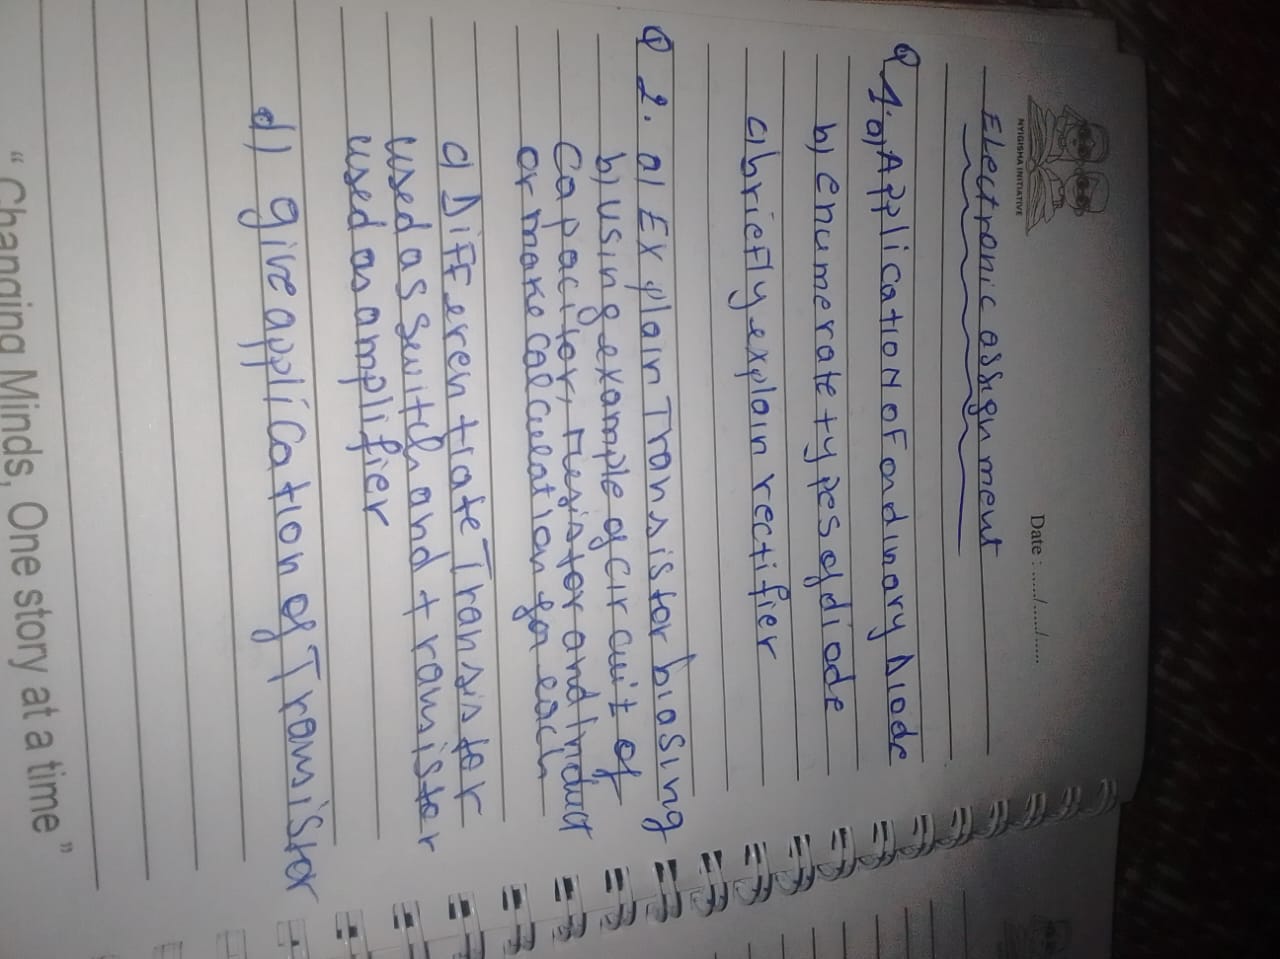 NYIGISHA INITIATIVE
Date : ....../....../......
Electronic assignment
Q1. a) Application of ordinary Diode
b) enumerate types of diode
c) briefly explain rectifier
Q 2. a) Explain Transistor biasing
b) using example of circuit of
Capacitor, resistor and Induct
or make calculation for each
c) Differentiate Transistor
used as switch and transistor
used as amplifier
d) give application of Transistor
“ Changing Minds, One story at a time ”